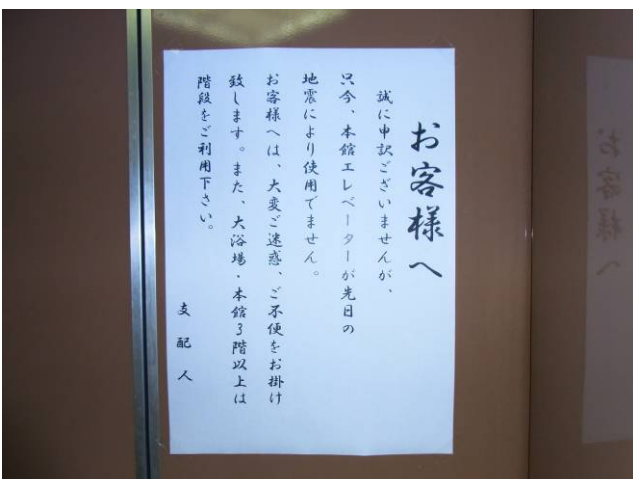 お客様へ
誠に申訳ございませんが、
只今、本館エレベーターが先日の
地震により使用でません。
お客様へは、大変ご迷惑、ご不便をお掛け
致します。また、大浴場・本館3階以上は
階段をご利用下さい。
支配人
お客様へ